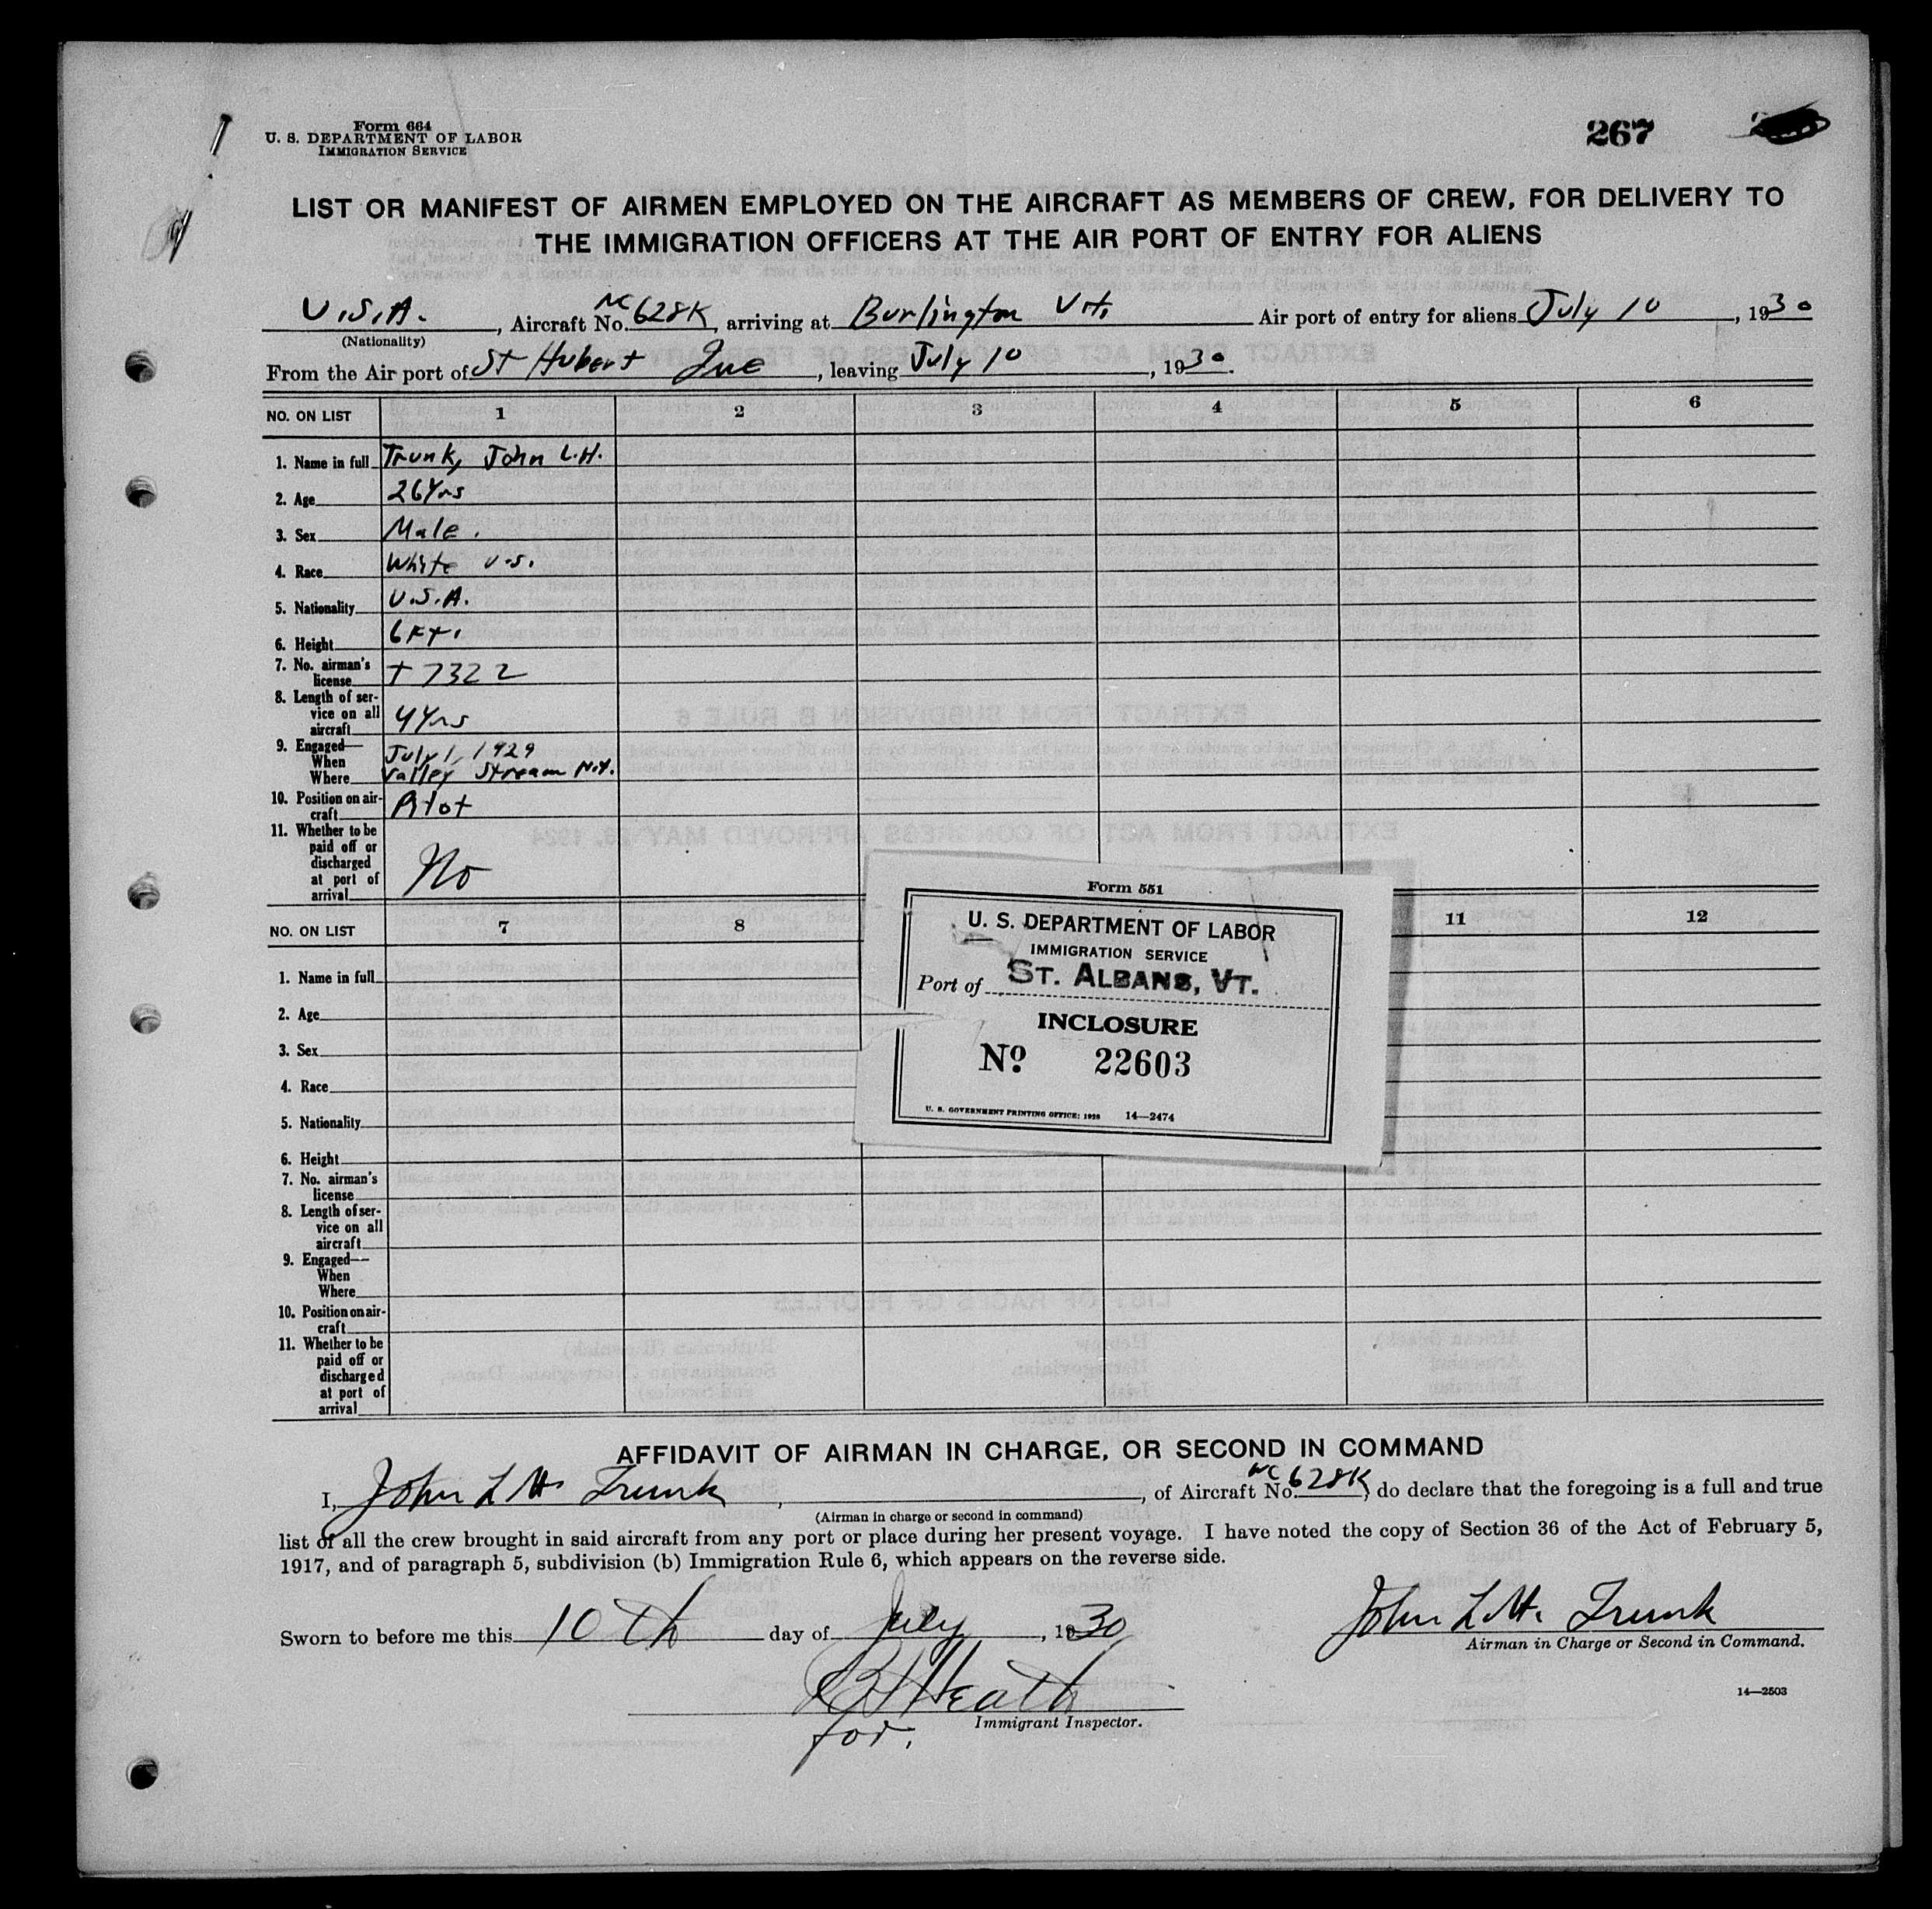 Form 664
U. S. DEPARTMENT OF LABOR
IMMIGRATION SERVICE
267
LIST OR MANIFEST OF AIRMEN EMPLOYED ON THE AIRCRAFT AS MEMBERS OF CREW, FOR DELIVERY TO
THE IMMIGRATION OFFICERS AT THE AIR PORT OF ENTRY FOR ALIENS
U.S.A., Aircraft No. NC 628K, arriving at Burlington Vt. Air port of entry for aliens July 10, 1930
(Nationality)
From the Air port of St Hubert Que, leaving July 10, 1930.
NO. ON LIST 1 2 3 4 5 6
1. Name in full Trunk, John L.H.
2. Age 26 Yrs
3. Sex Male.
4. Race White U.S.
5. Nationality U.S.A.
6. Height 6 Ft.
7. No. airman's
license T 7322
8. Length of ser-
vice on all
aircraft 4 Yrs
9. Engaged—
When July 1, 1929
Where Valley Stream N.Y.
10. Position on air-
craft Pilot
11. Whether to be
paid off or
discharged
at port of
arrival No
NO. ON LIST 7 8 11 12
1. Name in full
2. Age
3. Sex
4. Race
5. Nationality
6. Height
7. No. airman's
license
8. Length of ser-
vice on all
aircraft
9. Engaged—
When
Where
10. Position on air-
craft
11. Whether to be
paid off or
discharged
at port of
arrival
Form 551
U. S. DEPARTMENT OF LABOR
IMMIGRATION SERVICE
Port of ST. ALBANS, VT.
INCLOSURE
No. 22603
U. S. GOVERNMENT PRINTING OFFICE: 1928 14—2474
AFFIDAVIT OF AIRMAN IN CHARGE, OR SECOND IN COMMAND
I, John L. H. Trunk, , of Aircraft No. NC 628K, do declare that the foregoing is a full and true
(Airman in charge or second in command)
list of all the crew brought in said aircraft from any port or place during her present voyage. I have noted the copy of Section 36 of the Act of February 5,
1917, and of paragraph 5, subdivision (b) Immigration Rule 6, which appears on the reverse side.
Sworn to before me this 10th day of July, 1930
John L. H. Trunk
Airman in Charge or Second in Command.
Heath
for. Immigrant Inspector.
14—2503